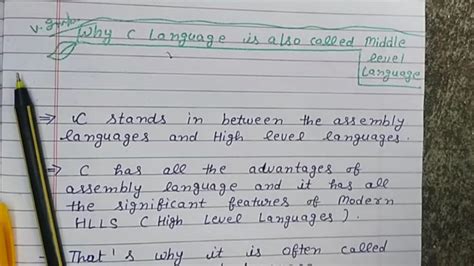 Why C Language is also called Middle
level
Language
C stands in between the assembly
languages and High level languages.
C has all the advantages of
assembly language and it has all
the significant features of Modern
HLLS ( High Level Languages ).
That's why it is often called